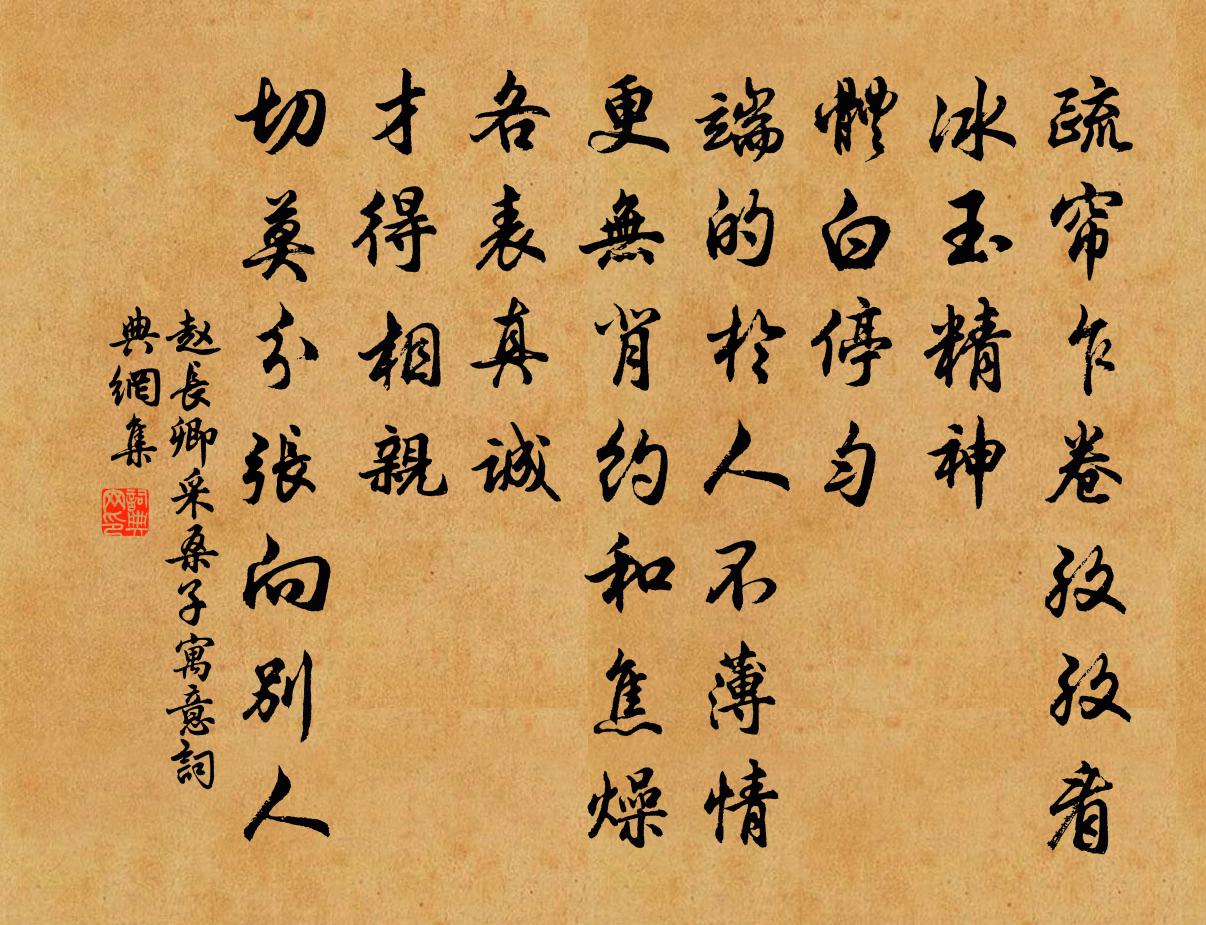 疏帘乍卷孜孜看
冰玉精神
體白停匀
端的於人不薄情
更無背約和焦燥
各表真誠
才得相親
切莫分張向別人
赵長卿采桑子寓意詞
典網集
詞典
网印